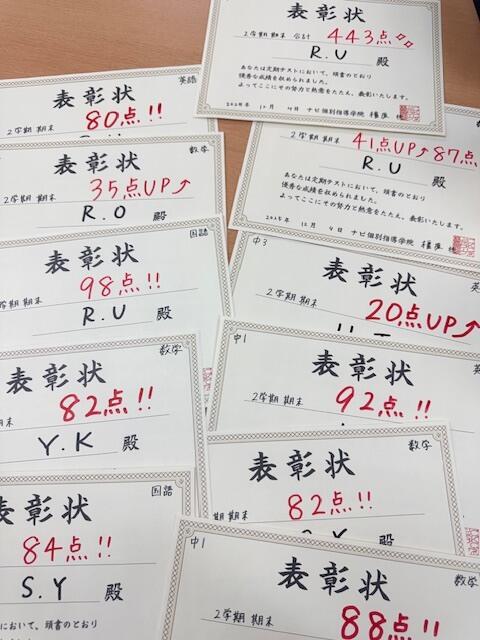 表彰状
2学期 期末 合計 443点
R.U 殿
あなたは定期テストにおいて、頭書のとおり
優秀な成績を収められました。
よってここにその努力と熱意をたたえ、表彰いたします。
2025年 12月 4日 ナビ個別指導学院
英語
表彰状
2学期 期末 80点!!
数学
表彰状
2学期 期末 35点UP↑
R.O 殿
国語
表彰状
2学期 期末 98点!!
R.U 殿
数学
表彰状
期末 82点!!
Y.K 殿
国語
表彰状
84点!!
S.Y 殿
において、頭書のとおり
2学期 期末 41点UP↑87点
R.U 殿
あなたは定期テストにおいて、頭書のとおり
優秀な成績を収められました。
よってここにその努力と熱意をたたえ、表彰いたします。
2025年 12月 4日 ナビ個別指導学院
中3
表彰状
2学期 期末 20点UP↑
中1
表彰状
2学期 期末 92点!!
数学
表彰状
期末 82点!!
中1
数学
表彰状
2学期 期末 88点!!